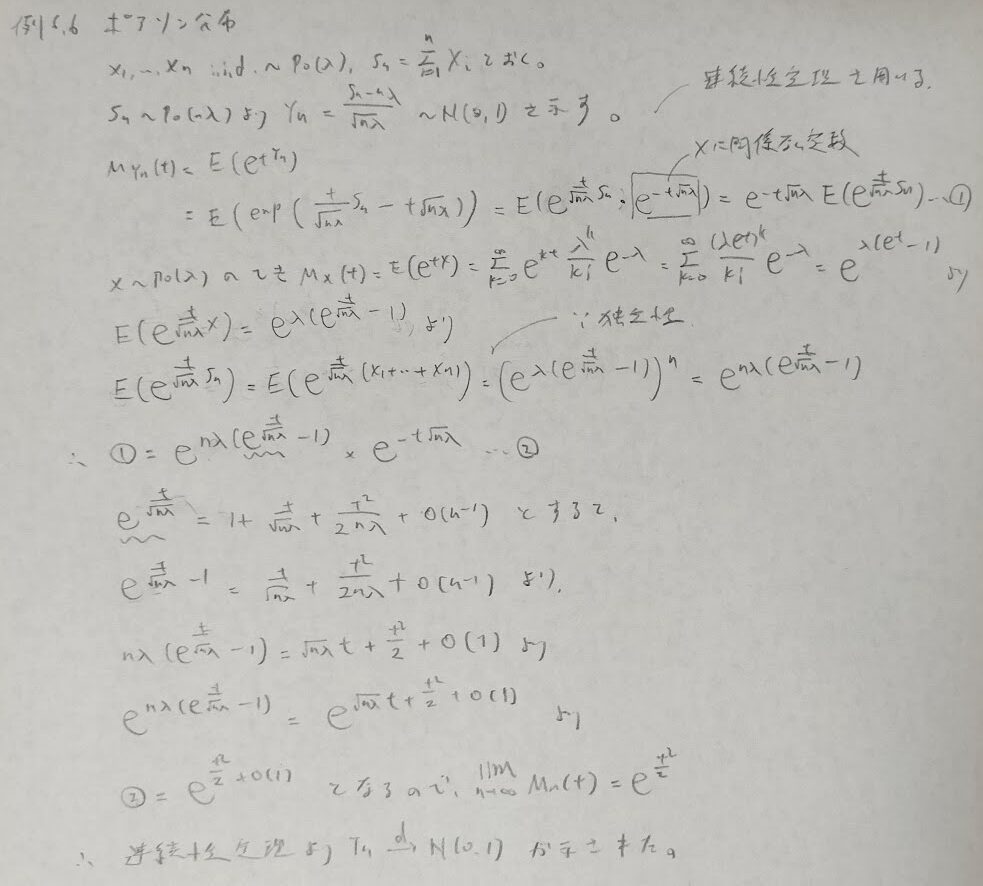 例5.6 ポアソン分布
X₁,…,Xn i.i.d. ~ Po(λ), Sn = Σ_{i=1}^{n} Xi とおく。
Sn ~ Po(nλ) より Yn = (Sn-nλ)/√nλ ~ N(0,1) を示す。
連続性定理を用いる。
M_{Yn}(t) = E(e^{tYn})
Xに関係ない定数
= E(exp(t/√nλ Sn - t√nλ)) = E(e^{t/√nλ Sn}・e^{-t√nλ}) = e^{-t√nλ} E(e^{t/√nλ Sn}) …①
X ~ Po(λ) のとき M_X(t) = E(e^{tX}) = Σ_{k=0}^{∞} e^{kt} λ^k/k! e^{-λ} = Σ_{k=0}^{∞} (λe^t)^k/k! e^{-λ} = e^{λ(e^t-1)} より
E(e^{t/√nλ X}) = e^{λ(e^{t/√nλ}-1)} より
∵独立性
E(e^{t/√nλ Sn}) = E(e^{t/√nλ (X₁+…+Xn)}) = (e^{λ(e^{t/√nλ}-1)})^n = e^{nλ(e^{t/√nλ}-1)}
∴ ① = e^{nλ(e^{t/√nλ}-1)} × e^{-t√nλ} …②
e^{t/√nλ} = 1 + t/√nλ + t²/2nλ + o(n^{-1}) とすると、
e^{t/√nλ} - 1 = t/√nλ + t²/2nλ + o(n^{-1}) より、
nλ(e^{t/√nλ} - 1) = √nλ t + t²/2 + o(1) より
e^{nλ(e^{t/√nλ}-1)} = e^{√nλ t + t²/2 + o(1)} より
② = e^{t²/2 + o(1)} となるので、lim_{n→∞} Mn(t) = e^{t²/2}
∴ 連続性定理より Yn →^d N(0,1) が示された。